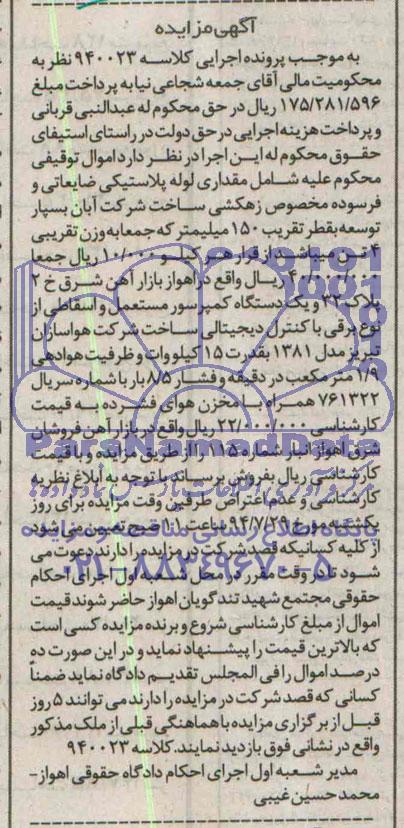 آگهی مزایده
به موجب پرونده اجرایی کلاسه ۹۴۰۰۲۳ نظر به
محکومیت مالی آقای جمعه شجاعی نیا به پرداخت مبلغ
۱۷۵/۲۸۱/۵۹۶ ریال در حق محکوم له عبدالنبی قربانی
و پرداخت هزینه اجرایی در حق دولت در راستای استیفای
حقوق محکوم له این اجرا در نظر دارد اموال توقیفی
محکوم علیه شامل مقداری لوله پلاستیکی ضایعاتی و
فرسوده مخصوص زهکشی ساخت شرکت آبان بسپار
توسعه بقطر تقریب ۱۵۰ میلیمتر که جمعا به وزن تقریبی
۴ تن میباشد از قرار هر کیلو ۱۰/۰۰۰ ریال جمعا
۴۰/۰۰۰/۰۰۰ ریال واقع در اهواز بازار آهن شرق خ ۲
پلاک ۳۲ و یک دستگاه کمپرسور مستعمل و اسقاطی از
نوع برقی با کنترل دیجیتالی ساخت شرکت هواسازان
تبریز مدل ۱۳۸۱ بقدرت ۱۵ کیلو وات و ظرفیت هوادهی
۱/۹ متر مکعب در دقیقه و فشار ۸/۵ بار با شماره سریال
۷۶۱۳۲۲ همراه با مخزن هوای فشرده به قیمت
کارشناسی ۲۲/۰۰۰/۰۰۰ ریال واقع در بازار آهن فروشان
شرق اهواز انبار شماره ۱۱۵ را از طریق مزایده و با قیمت
کارشناسی ریال بفروش برساند با توجه به ابلاغ نظریه
کارشناسی و عدم اعتراض طرفین وقت مزایده برای روز
یکشنبه مورخ ۹۴/۷/۲۹ ساعت ۱۱ صبح تعیین می شود
از کلیه کسانیکه قصد شرکت در مزایده را دارند دعوت می
شود تا در وقت مقرر در محل شعبه اول اجرای احکام
حقوقی مجتمع شهید تندگویان اهواز حاضر شوند قیمت
اموال از مبلغ کارشناسی شروع و برنده مزایده کسی است
که بالاترین قیمت را پیشنهاد نماید و در این صورت ده
درصد اموال را فی المجلس تقدیم دادگاه نماید ضمناً
کسانی که قصد شرکت در مزایده را دارند می توانند ۵ روز
قبل از برگزاری مزایده با هماهنگی قبلی از ملک مذکور
واقع در نشانی فوق بازدید نمایند. کلاسه ۹۴۰۰۲۳
مدیر شعبه اول اجرای احکام دادگاه حقوقی اهواز-
محمد حسین غیبی
ParsNamadData
پایگاه اطلاع رسانی مناقصه مزایده
۰۲۱-۸۸۳۴۹۶۷۰-۵